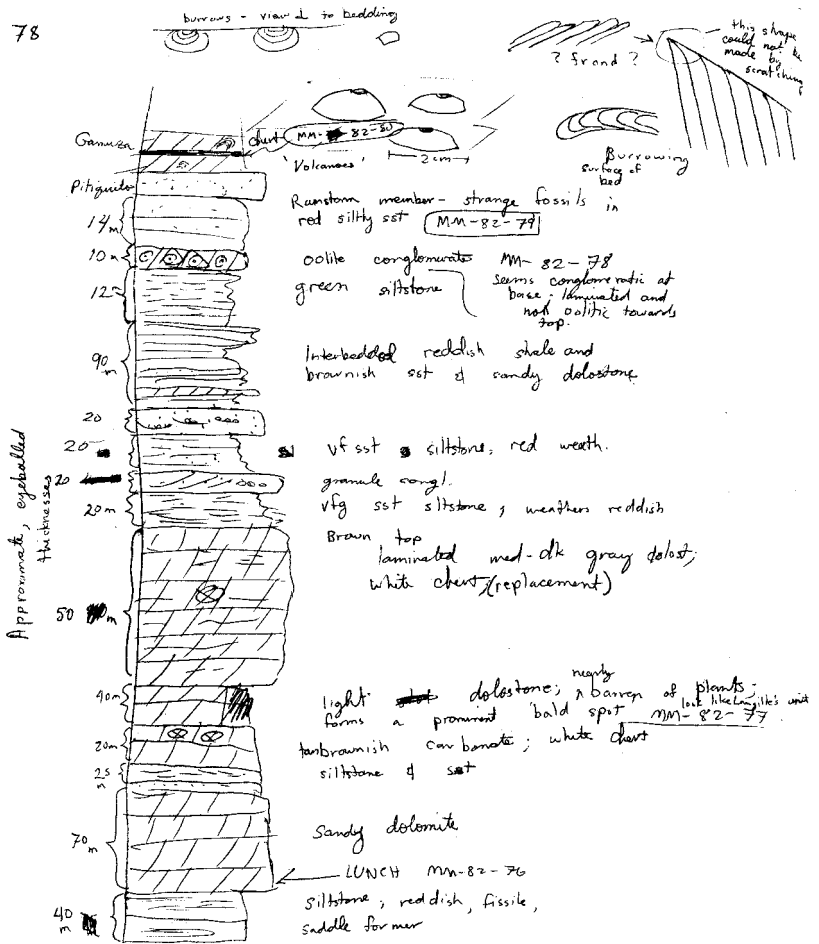 78
burrows - view ⊥ to bedding
? frond ?
this shape
could not be
made by
scratching
Gamuza
chert
MM- 82-80
'Volcanoes'
2cm
Burrowing
surface of
bed
Pitiquito
14 m
member - strange fossils in
red silty sst MM-82-79
10 m
oolite conglomerate MM-82-78
12
green siltstone
seems conglomeratic at
base - laminated and
not oolitic towards
top.
90 m
Interbedded reddish shale and
brownish sst & sandy dolostone
Approximate, eyeballed
thicknesses
20
20
vf sst siltstone, red weath.
20
granule congl.
20 m
vfg sst siltstone, weathers reddish
Brown top
laminated med-dk gray dolost;
white chert, (replacement)
50 m
40 m
light dolostone; nearly barren of plants;
forms a prominent 'bald spot'
look like unit
MM-82-77
20 m
tan brownish carbonate; white chert
25 m
siltstone & sst
70 m
Sandy dolomite
LUNCH MM-82-76
40 m
siltstone, reddish, fissile,
saddle former